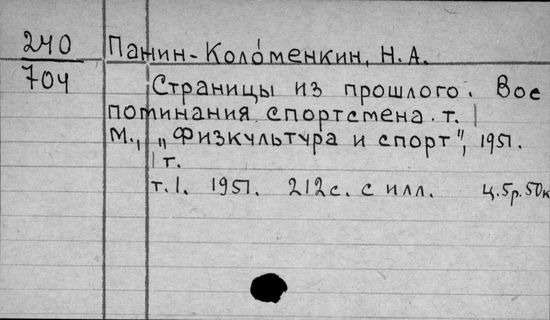 240
704
Панин-Коло́менкин, Н.А.
Страницы из прошлого. Вос
поминания спортсмена. т. 1
М., „Физкультура и спорт", 1951.
1 т.
т.1. 1951. 212с. с илл. ц.5р.50к